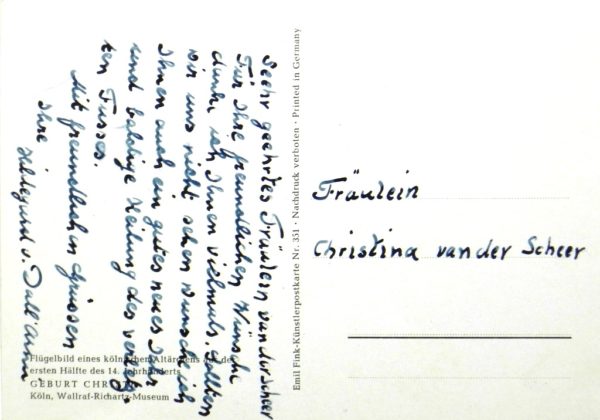 Seehr geehrtes Fräulein van der Scheer
Für Ihre freundlichen Wünsche
danke ich Ihnen vielmals. Sollten
wir uns nicht sehen wünsche ich
Ihnen auch ein gutes neues Jahr
und baldige Heilung des verletz-
ten Fusses.
Mit freundlichen Grüssen
Ihre
Hildegund v. Dall'Armi
Flügelbild eines kölnischen Altärchens aus der
ersten Hälfte des 14. Jahrhunderts
GEBURT CHRISTI
Köln, Wallraf-Richartz-Museum
Emil Fink-Künstlerpostkarte Nr. 351 · Nachdruck verboten · Printed in Germany
Fräulein
Christina van der Scheer